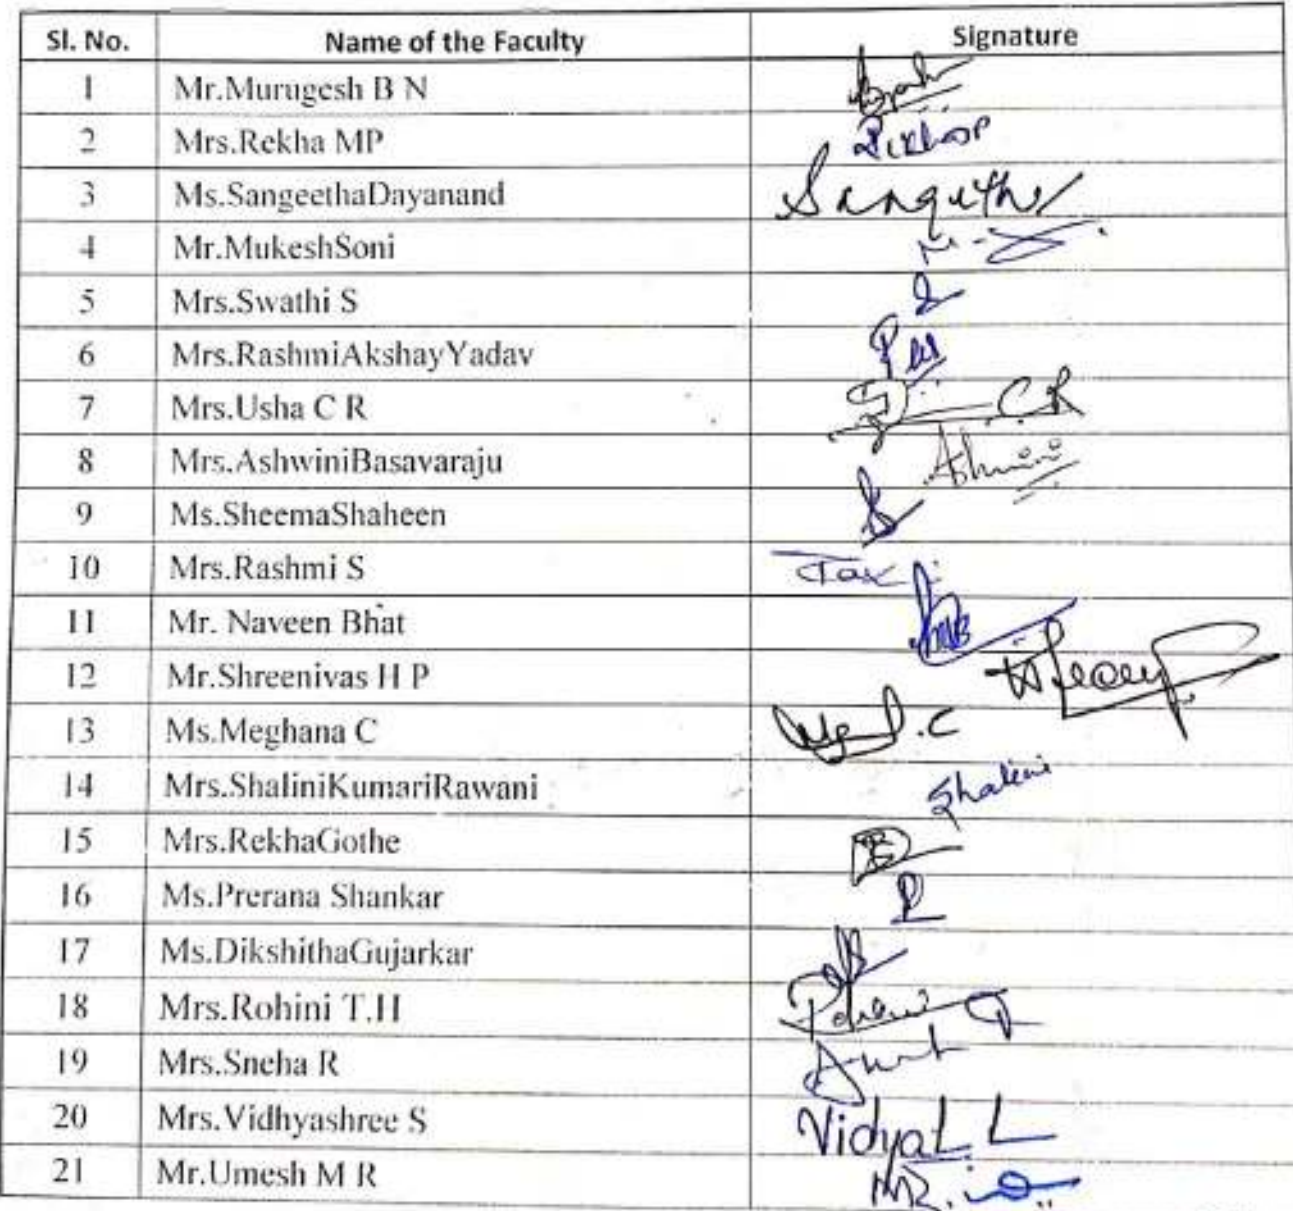 Sl. No. Name of the Faculty Signature
1 Mr.Murugesh B N
2 Mrs.Rekha MP
3 Ms.SangeethaDayanand
4 Mr.MukeshSoni
5 Mrs.Swathi S
6 Mrs.RashmiAkshayYadav
7 Mrs.Usha C R CR
8 Mrs.AshwiniBasavaraju
9 Ms.SheemaShaheen
10 Mrs.Rashmi S
11 Mr. Naveen Bhat
12 Mr.Shreenivas H P
13 Ms.Meghana C
14 Mrs.ShaliniKumariRawani Shalini
15 Mrs.RekhaGothe
16 Ms.Prerana Shankar
17 Ms.DikshithaGujarkar
18 Mrs.Rohini T.H
19 Mrs.Sneha R
20 Mrs.Vidhyashree S
21 Mr.Umesh M R